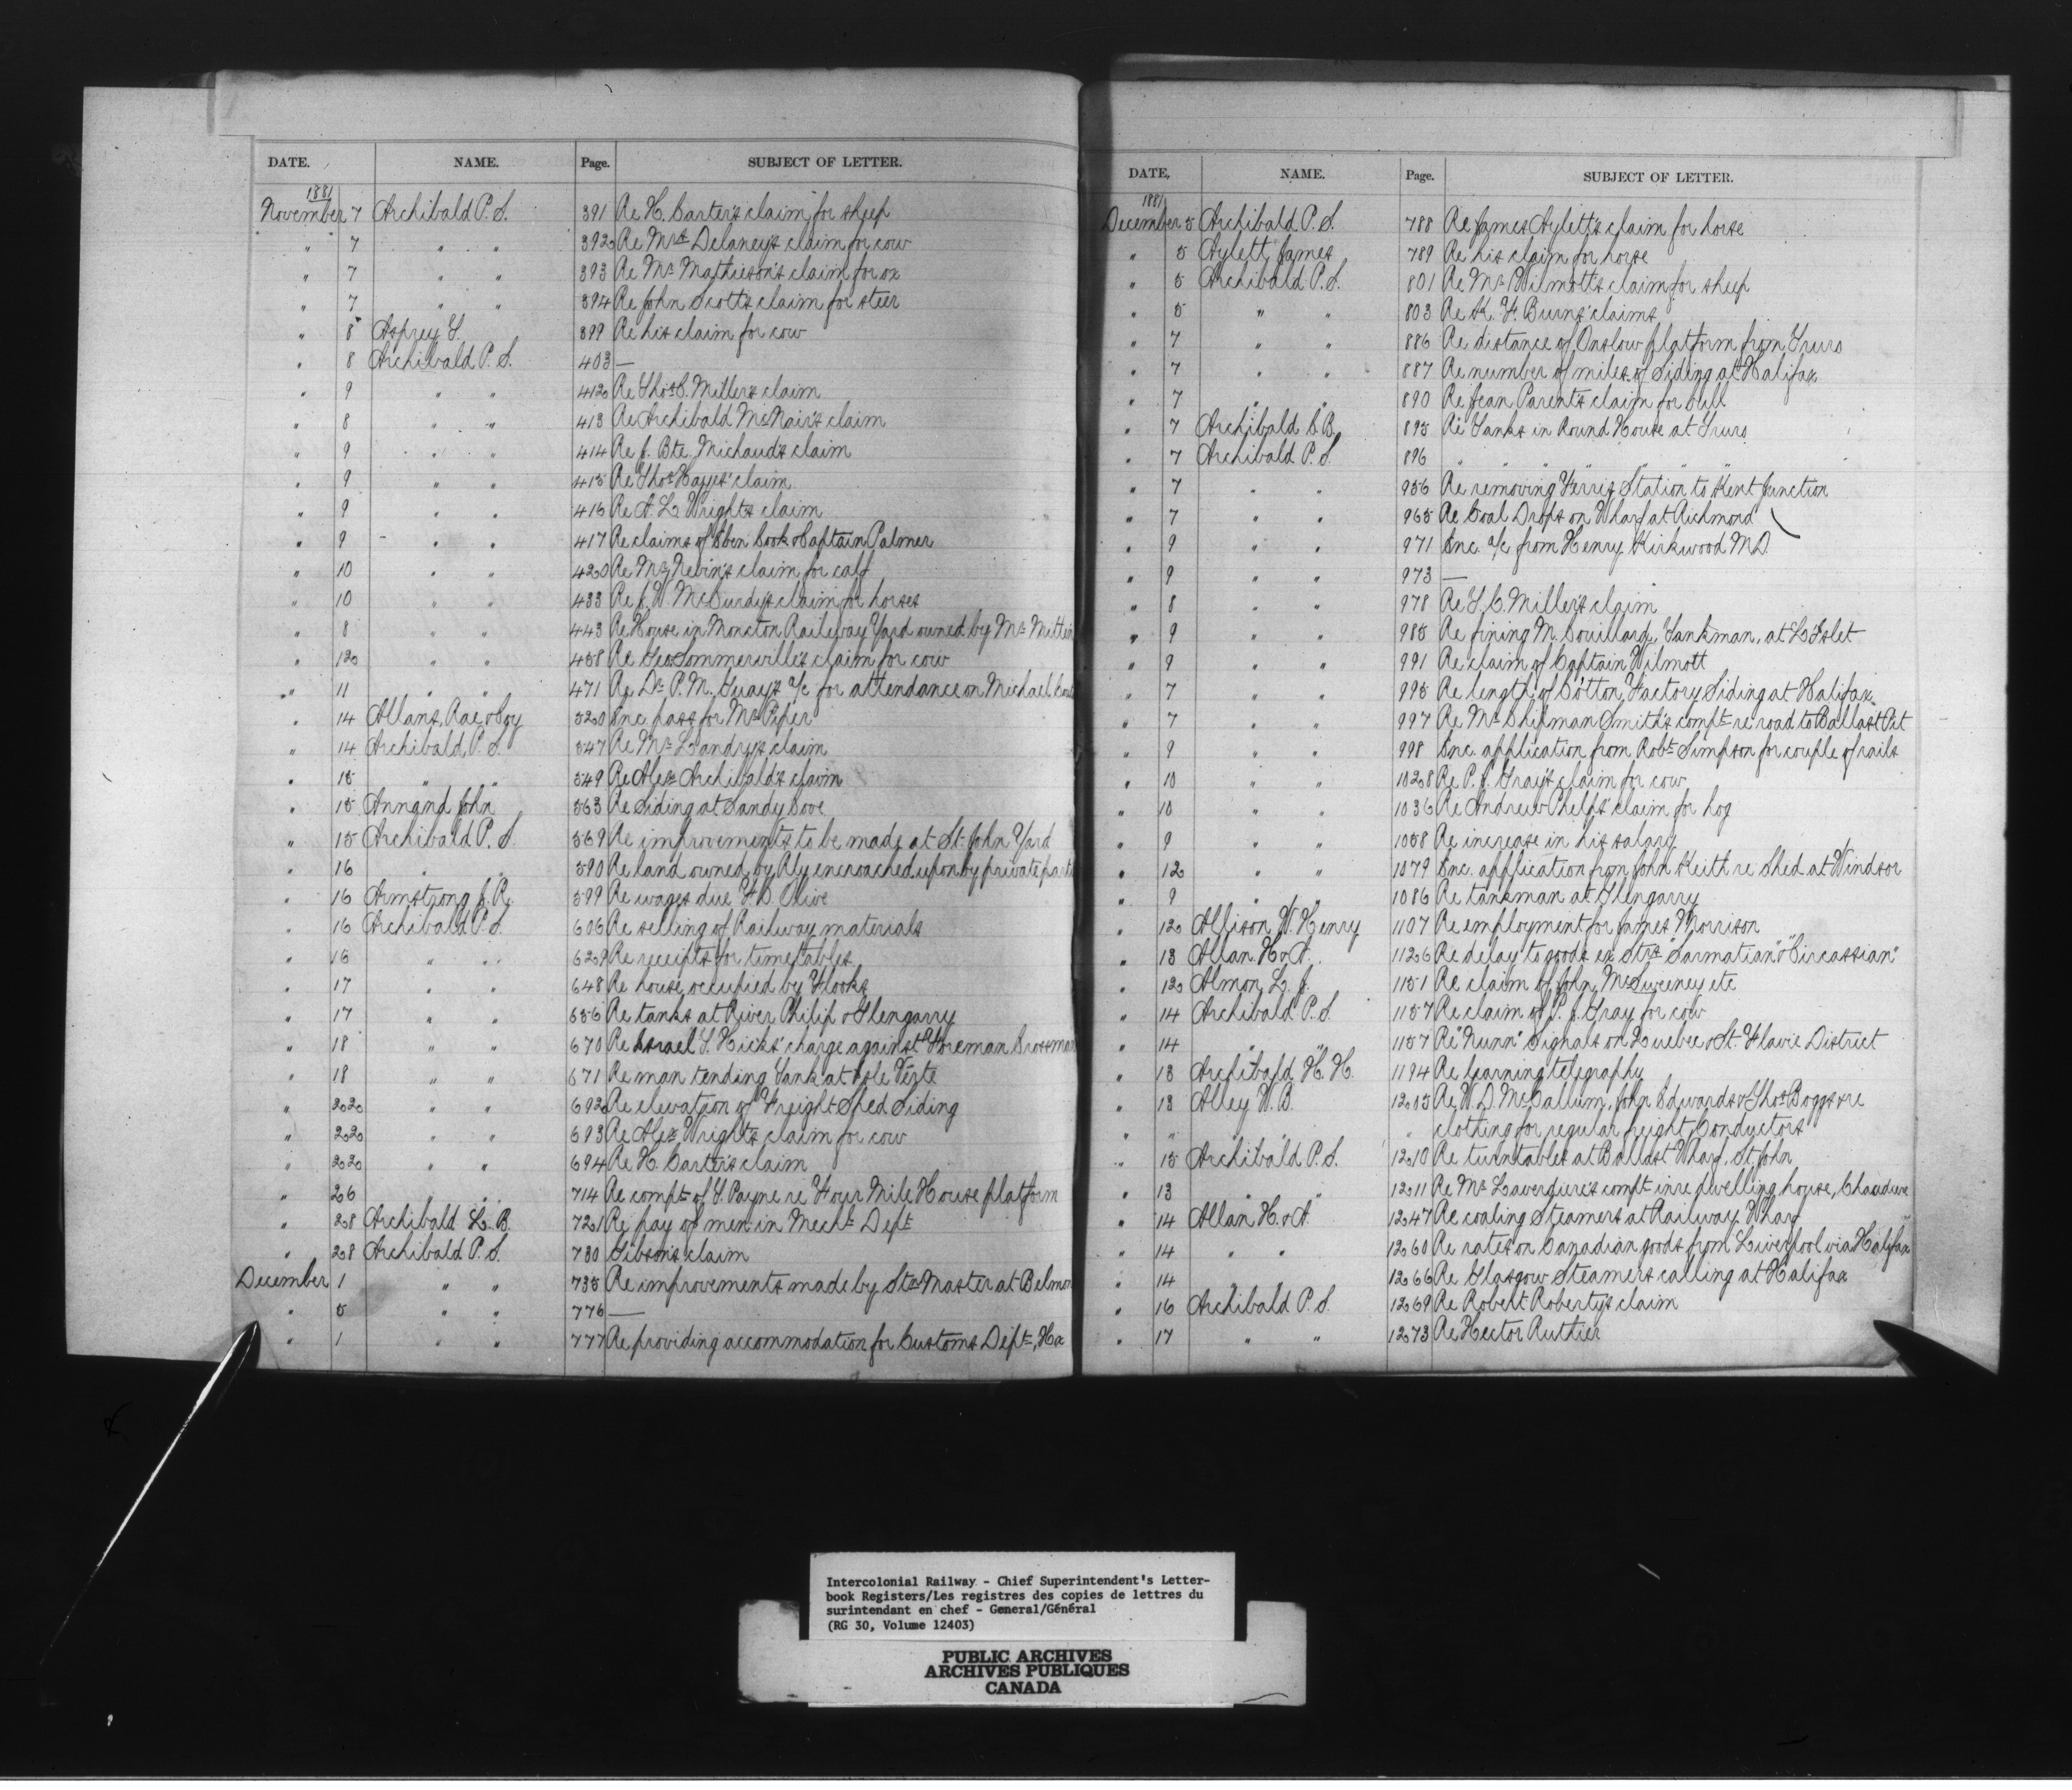 DATE. NAME. Page. SUBJECT OF LETTER.
1881
November 7 Archibald P. S. 391 Re H. Carter's claim for sheep
" 7 " " 392 Re Mrs Delaney's claim for cow
" 7 " " 393 Re Mr Mathieson's claim for ox
" 7 " " 394 Re John Scott's claim for steer
" 8 Asprey T. 399 Re his claim for cow
" 8 Archibald P. S. 403 —
" 9 " " 412 Re Thos S. Miller's claim
" 8 " " 413 Re Archibald McNair's claim
" 9 " " 414 Re J. Bte Michaud's claim
" 9 " " 415 Re Thos Hayes' claim
" 9 " " 416 Re A. L. Wright's claim
" 9 " " 417 Re claims of Eben Cook & Captain Palmer
" 10 " " 420 Re Nevin's claim for calf
" 10 " " 433 Re J. W. McCurdy's claim for horses
" 8 " " 443 Re House in Moncton Railway Yard owned by Mr
" 12 " " 458 Re Geo Sommerville's claim for cow
" 11 " " 471 Re Dr P. M. a/c for attendance on Michael
" 14 Allans, Rae & Coy 520 Enc. pass for Mr Piper
" 14 Archibald P. S. 547 Re Mr Landry's claim
" 15 " " 549 Re Alex Archibald's claim
" 15 Annand John 563 Re Siding at Sandy Cove
" 15 Archibald P. S. 569 Re improvements to be made at St. John Yard
" 16 " " 590 Re land owned by Rly encroached upon by private part
" 16 Armstrong J. R. 599 Re wages due F. D. Clive
" 16 Archibald P. S. 606 Re selling of Railway materials
" 16 " " 629 Re receipts for timetables
" 17 " " 648 Re house occupied by Flooks
" 17 " " 656 Re tanks at River Philip & Glengarry
" 18 " " 670 Re Israel S. Hicks' charge against Foreman Crossman
" 18 " " 671 Re man tending Tank at Isle Verte
" 22 " " 692 Re elevation of Freight Shed Siding
" 22 " " 693 Re Alex Wright's claim for cow
" 22 " " 694 Re H. Carter's claim
" 26 " " 714 Re compt of T. Payne re Four Mile House platform
" 28 Archibald L. B. 721 Re pay of men in Mechl Dept
" 28 Archibald P. S. 730 Gibson's claim
December 1 " " 735 Re improvements made by Stn Master at Belmon
" 5 " " 776 —
" 1 " " 777 Re providing accommodation for Customs Dept, Hx
DATE. NAME. Page. SUBJECT OF LETTER.
1881
December 5 Archibald P. S. 788 Re James Aylett's claim for horse
" 5 Aylett James 789 Re his claim for horse
" 5 Archibald P. S. 801 Re Mr Wilmott's claim for sheep
" 5 " " 803 Re K. F. Burns' claims
" 7 " " 886 Re distance of Onslow platform from Truro
" 7 " " 887 Re number of miles of Siding at Halifax
" 7 " " 890 Re Jean Parent's claim for bull
" 7 Archibald S. B. 895 Re Tanks in Round House at Truro
" 7 Archibald P. S. 896 " " " " " " "
" 7 " " 956 Re removing Ferris Station to Kent Junction
" 7 " " 965 Re Coal Drops on Wharf at Richmond
" 9 " " 971 Enc. a/c from Henry Kirkwood M.D.
" 9 " " 973 —
" 8 " " 978 Re T. C. Miller's claim
" 9 " " 985 Re fining M. Couillard, Tankman, at L'Islet
" 9 " " 991 Re claim of Captain Wilmott
" 7 " " 995 Re length of Cotton Factory Siding at Halifax
" 7 " " 997 Re Mr Shipman Smith's compt re road to Ballast Pit
" 9 " " 998 Enc. application from Robt Simpson for couple of rails
" 10 " " 1028 Re P. J. Gray's claim for cow
" 10 " " 1036 Re Andrew Phelps' claim for hog
" 9 " " 1058 Re increase in his salary
" 12 " " 1079 Enc. application from John Keith re Shed at Windsor
" 9 " " 1086 Re tankman at Glengarry
" 12 Allison W. Henry 1107 Re employment for James Morrison
" 13 Allan H. & A. 1126 Re delay to goods ex Strs "Sarmatian" & "Circassian"
" 12 Almon L. J. 1151 Re claim of John McSweeney etc
" 14 Archibald P. S. 1157 Re claim of P. J. Gray for cow
" 14 " " 1157 Re "Nunn" Signals on Quebec & St. Flavie District
" 13 Archibald H. H. 1194 Re learning telegraphy
" 13 Alley W. B. 1205 Re W. D. McCallum, John Edwards & Thos Boggs re
" " " " " clothing for regular freight Conductors
" 15 Archibald P. S. 1210 Re turntables at Ballast Wharf, St. John
" 13 " " 1211 Re Mr Lavergure's compt in re dwelling house, Chaudiere
" 14 Allan H. & A. 1247 Re coaling Steamers at Railway Wharf
" 14 " " 1260 Re rates on Canadian goods from Liverpool via Halifax
" 14 " " 1266 Re Glasgow Steamers calling at Halifax
" 16 Archibald P. S. 1269 Re Robert Roberty's claim
" 17 " " 1273 Re Hector Ruthier
Intercolonial Railway - Chief Superintendent's Letter-
book Registers/Les registres des copies de lettres du
surintendant en chef - General/Général
(RG 30, Volume 12403)
PUBLIC ARCHIVES
ARCHIVES PUBLIQUES
CANADA